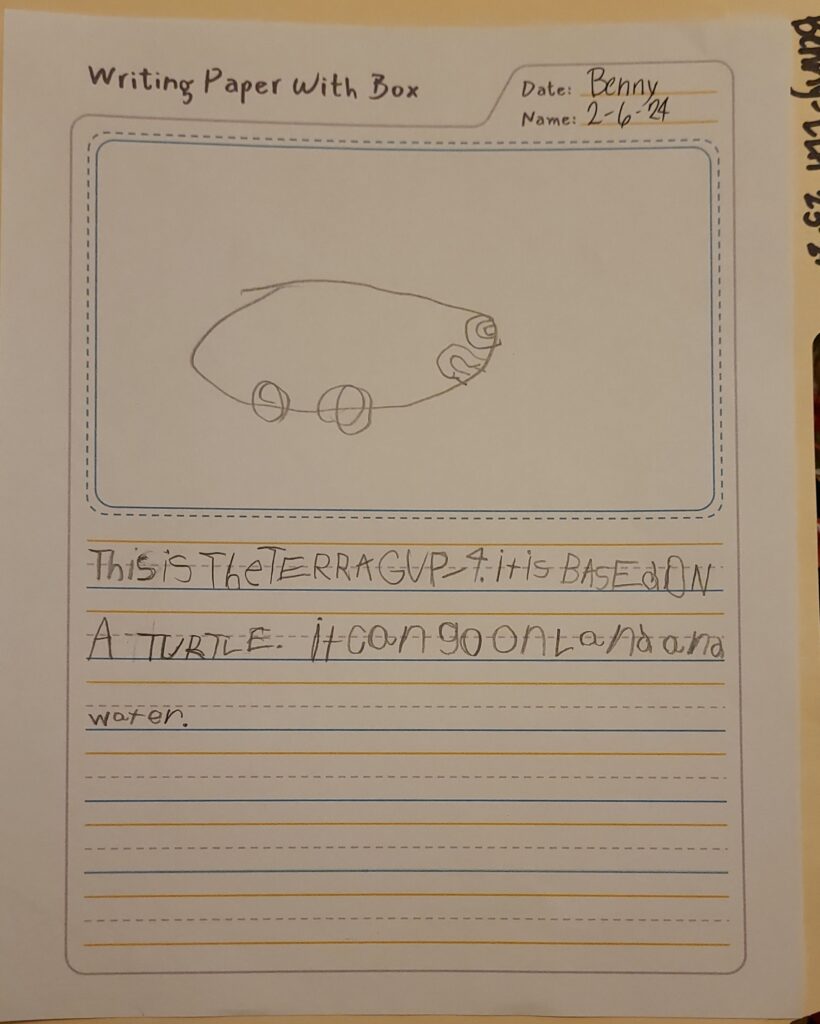 Writing Paper With Box
Date: Benny
Name: 2-6-24
This is The TERRA GUP-4. it is BASEd ON
A TURTLE. it can go on Land and
water.